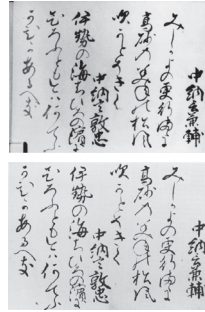 中納言兼輔
みしかよの更行まゝに
高砂のみねの松風
吹かとそきく
中納言敦忠
伊勢の海ちひろの濱に
ひろふともいまは何てふ
かひかあるへき
中納言兼輔
みしかよの更行まゝに
高砂のみねの松風
吹かとそきく
中納言敦忠
伊勢の海ちひろの濱に
ひろふともいまは何てふ
かひかあるへき